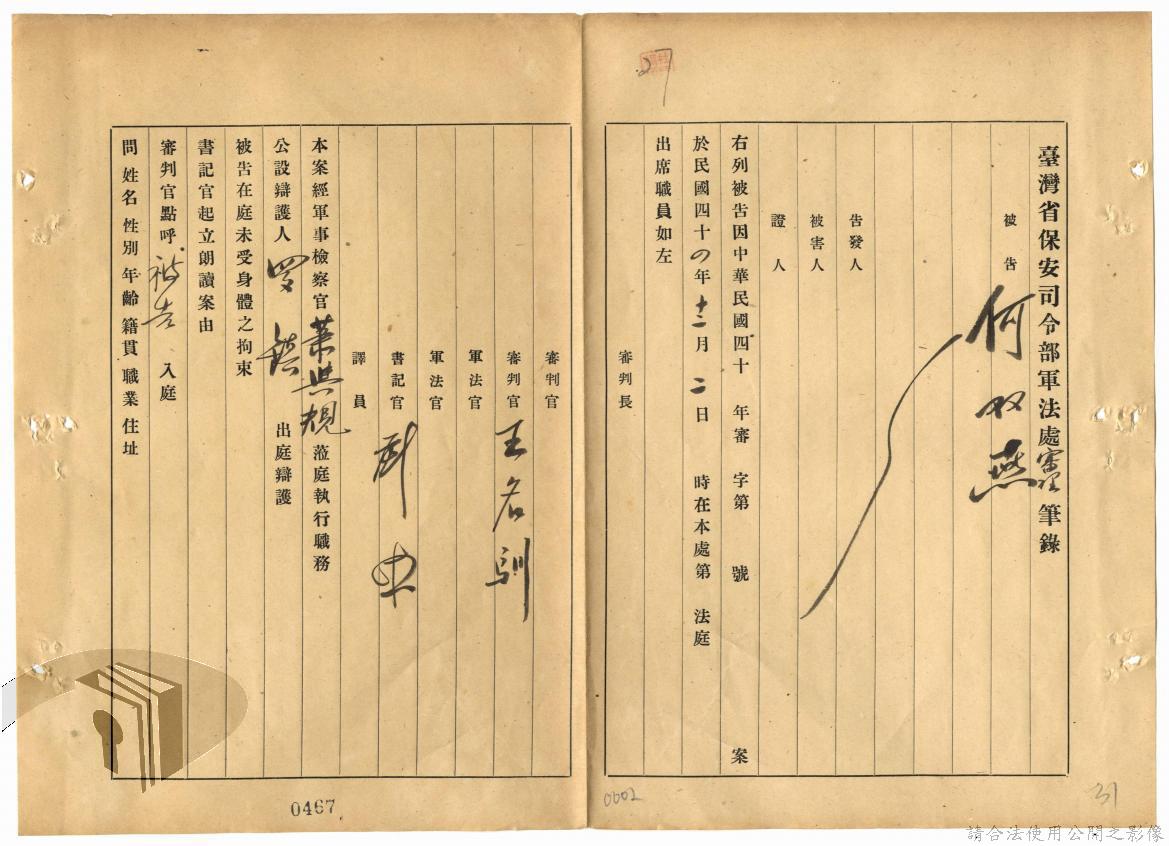 臺灣省保安司令部軍法處審理筆錄
被告 何双燕
告發人
被害人
證人
右列被告因中華民國四十 年審 字第 號 案
於民國四十四年十二月二日 時在本處第 法庭
出席職員如左
審判長
審判官
審判官 王名馴
軍法官
軍法官
書記官
譯員
本案經軍事檢察官 蒞庭執行職務
公設辯護人 出庭辯護
被告在庭未受身體之拘束
書記官起立朗讀案由
審判官點呼被告入庭
問 姓名 性別 年齡 籍貫 職業 住址
0467
0002
31
27
請合法使用公開之影像